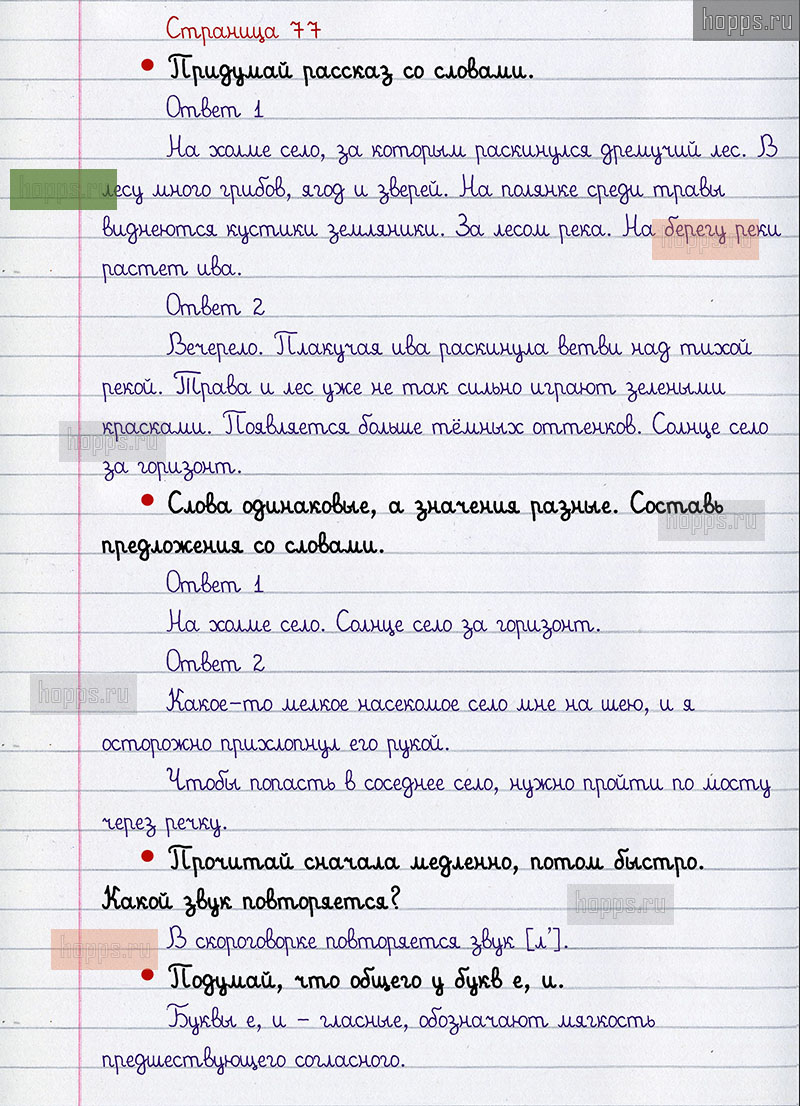 hopps.ru
Страница 77
• Придумай рассказ со словами.
Ответ 1
На холме село, за которым раскинулся дремучий лес. В
лесу много грибов, ягод и зверей. На полянке среди травы
hopps.ru
виднеются кустики земляники. За лесом река. На берегу реки
hopps.ru
растет ива.
Ответ 2
Вечерело. Плакучая ива раскинула ветви над тихой
рекой. Трава и лес уже не так сильно играют зелеными
красками. Появляется больше тёмных оттенков. Солнце село
hopps.ru
за горизонт.
• Слова одинаковые, а значения разные. Составь
hopps.ru
предложения со словами.
Ответ 1
На холме село. Солнце село за горизонт.
Ответ 2
hopps.ru
Какое-то мелкое насекомое село мне на шею, и я
осторожно прихлопнул его рукой.
Чтобы попасть в соседнее село, нужно пройти по мосту
через речку.
• Прочитай сначала медленно, потом быстро.
Какой звук повторяется?
hopps.ru
В скороговорке повторяется звук [л’].
hopps.ru
• Подумай, что общего у букв е, и.
Буквы е, и – гласные, обозначают мягкость
предшествующего согласного.